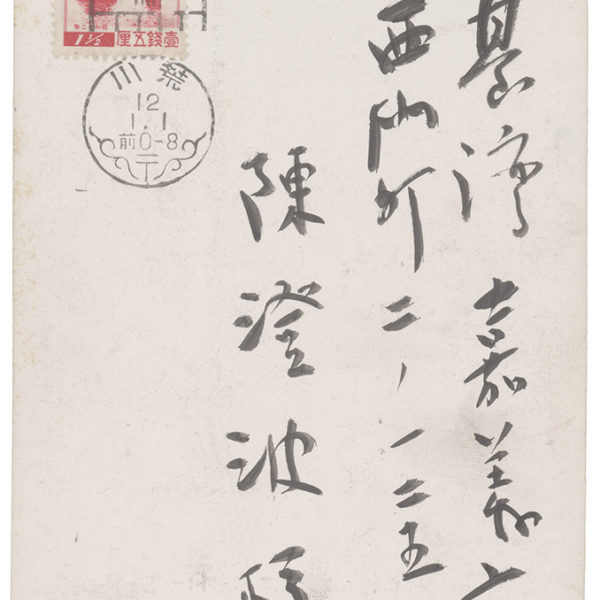 臺灣嘉義
西門町二ノ一二五
陳澄波様
壹錢五厘
1½
12
1.1
前0-8